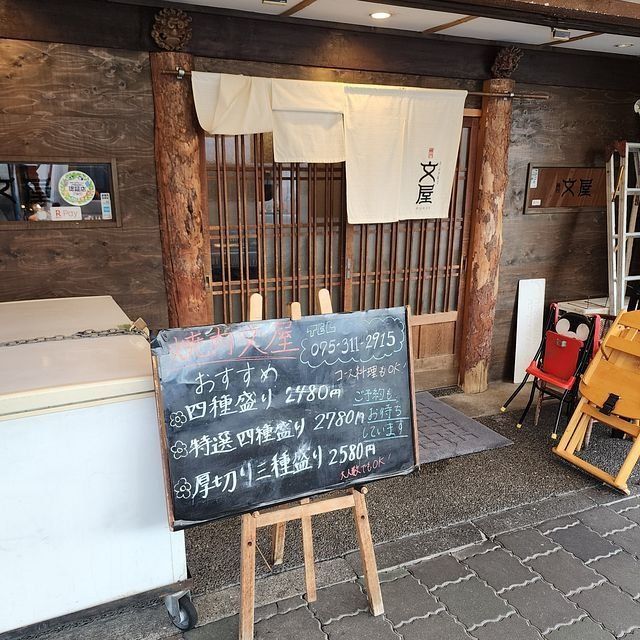 文屋
文屋
R Pay
認証店
焼肉文屋
TEL
075-311-2915
コース料理もOK
おすすめ
四種盛り 2480円
特選四種盛り 2780円
厚切り三種盛り 2580円
ご予約も
お待ち
しています
大人数でもOK!